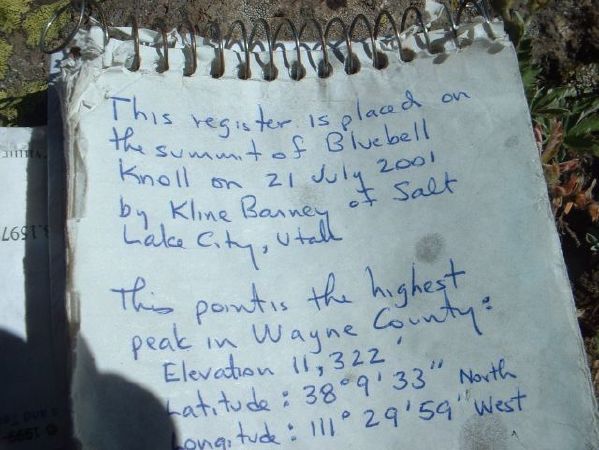 This register is placed on
the summit of Bluebell
Knoll on 21 July 2001
by Kline Barney of Salt
Lake City, Utah
This point is the highest
peak in Wayne County:
Elevation 11,322'
Latitude: 38° 9' 33" North
Longitude: 111° 29' 59" West